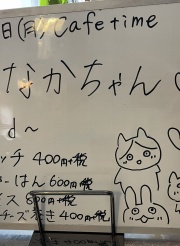 日(月) Cafe time
なかちゃん
d~
ッチ 400円+税
はん 600円+税
ス 800円+税
チーズ 400円+税